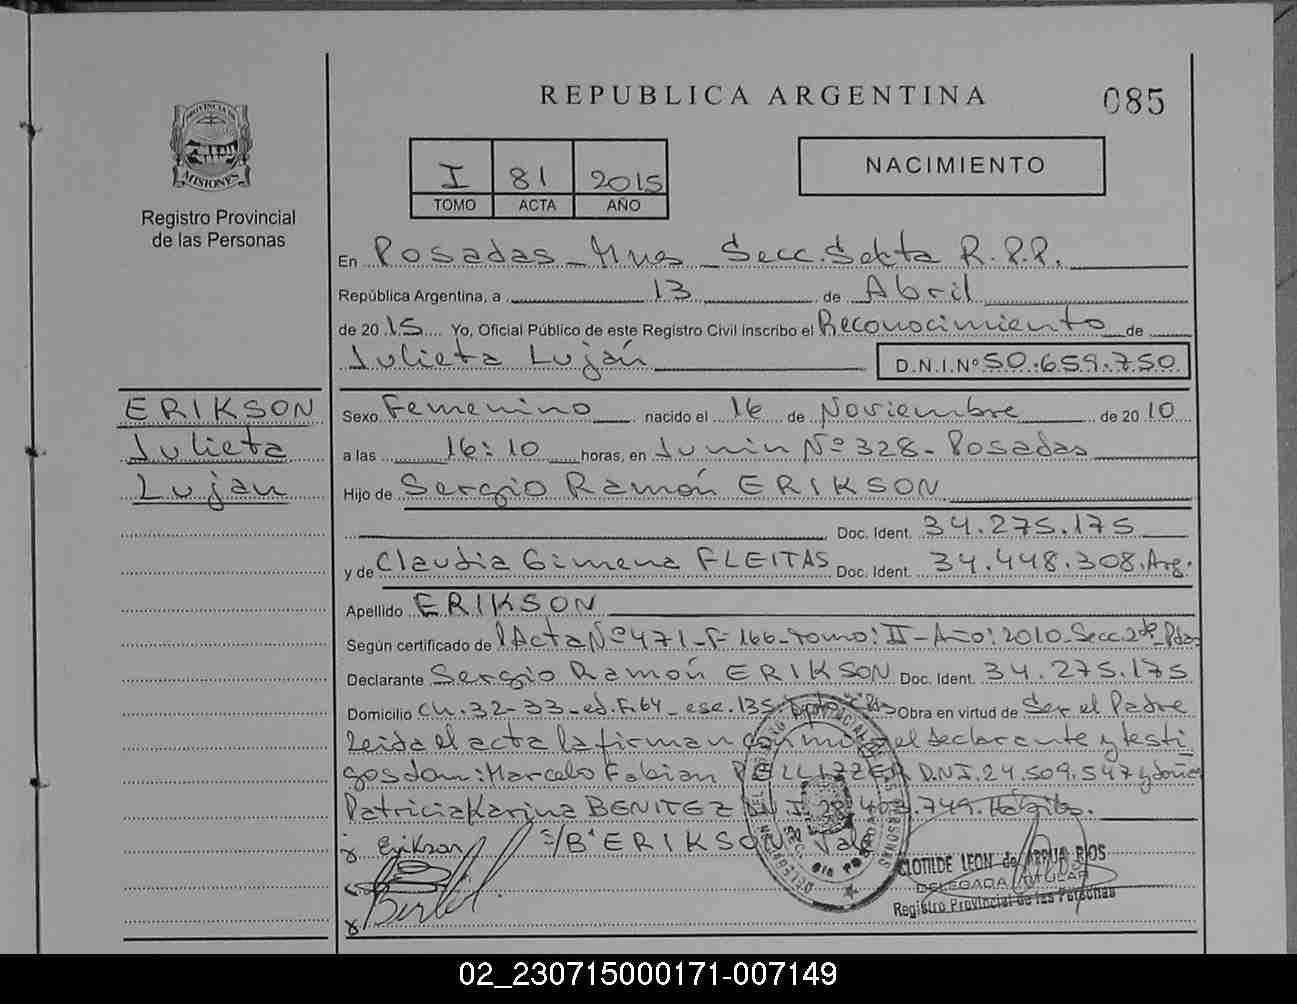 REPUBLICA ARGENTINA
085
PROVINCIA DE
MISIONES
Registro Provincial
de las Personas
I 81 2015
TOMO ACTA AÑO
NACIMIENTO
En Posadas - Mnes - Secc. Sexta R.P.P.
República Argentina, a 13 de Abril
de 2015 Yo, Oficial Público de este Registro Civil inscribo el Reconocimiento de
Julieta Luján D.N.I.Nº 50.659.750
ERIKSON
Julieta
Lujan
Sexo Femenino nacido el 16 de Noviembre de 2010
a las 16:10 horas, en Junin Nº 328 - Posadas
Hijo de Sergio Ramón ERIKSON
Doc. Ident. 34.275.175
y de Claudia Gimena FLEITAS Doc. Ident. 34.448.308. Arg.
Apellido ERIKSON
Según certificado de Acta Nº 471 - F 166 - Tomo: II - Año: 2010 - Secc. 2da Pdas
Declarante Sergio Ramón ERIKSON Doc. Ident. 34.275.175
Domicilio Ch. 32-33 - ed. F. 64 - esc. 135 Obra en virtud de Ser el Padre
Leida el acta la firman conmigo el declarante y testi
gos don: Marcelo Fabian D.N.I. 24.509.547 y doña
Patricia Karina BENITEZ
Erikson E/B" ERIKSON Vale
CLOTILDE LEON de ARRUA RIOS
DELEGADA TITULAR
Registro Provincial de las Personas
02_230715000171-007149